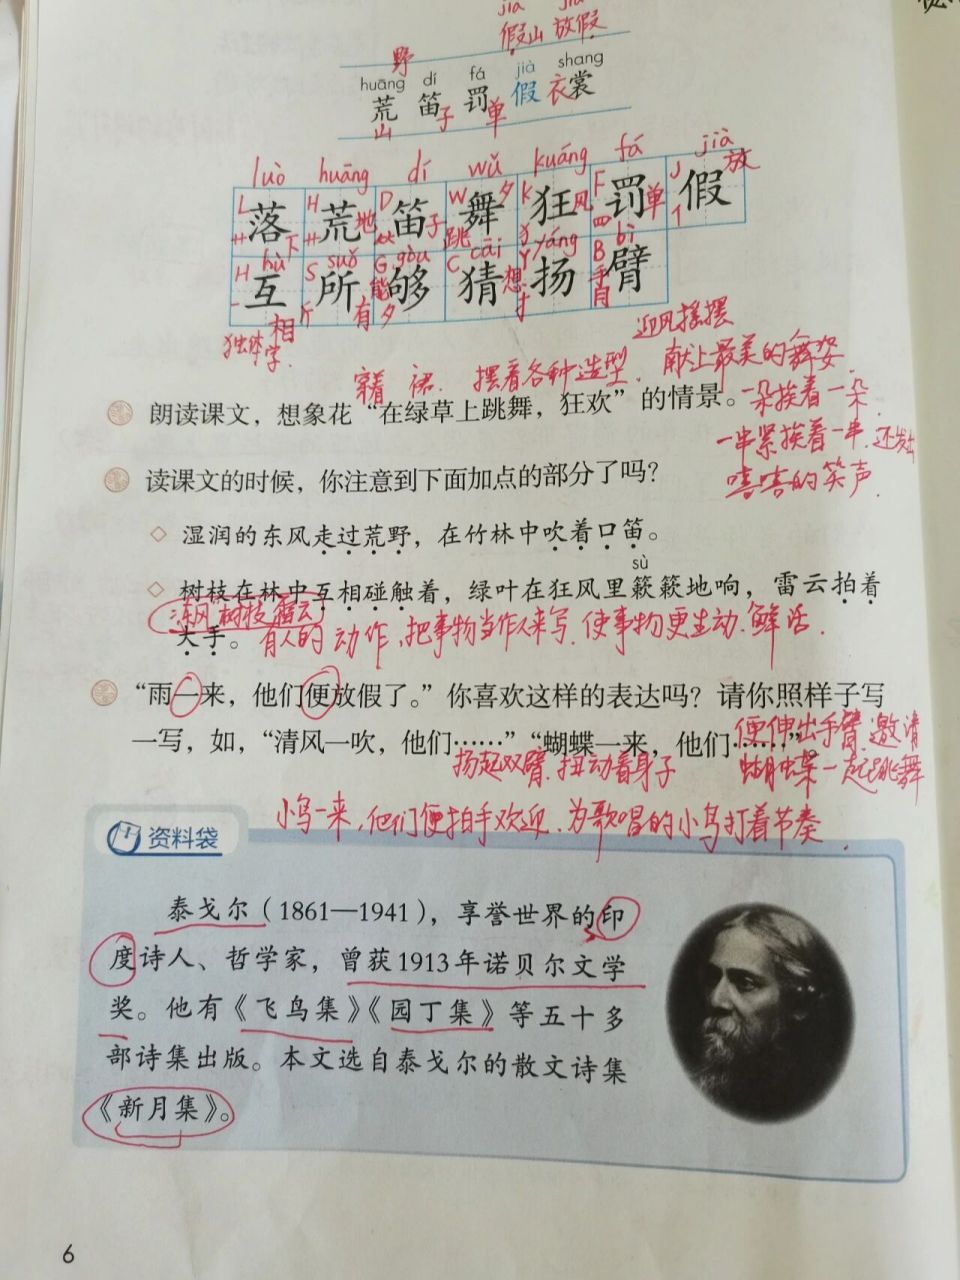 jiǎ jià
假山 放假
野
huāng dí fá jià shang
荒 笛 罚 假 裳
山 子 单 衣
luò huāng dí wǔ kuáng fá jià
落 荒 笛 舞 狂 罚 假
下 地 子 跳 风 单 放
hù suǒ gòu cāi yáng bì
互 所 够 猜 扬 臂
相 有 能 想 手
独体字
迎风摇摆
穿着 裙. 摆着各种造型. 献上最美的舞姿.
朗读课文，想象花“在绿草上跳舞，狂欢”的情景。
一朵挨着一朵.
一串紧挨着一串.还发出
读课文的时候，你注意到下面加点的部分了吗？
嘻嘻的笑声.
湿润的东风走过荒野，在竹林中吹着口笛。
sù
树枝在林中互相碰触着，绿叶在狂风里簌簌地响，雷云拍着
东风 树枝 雷云
大手。
有人的动作,把事物当作人来写.使事物更生动.鲜活.
“雨一来，他们便放假了。”你喜欢这样的表达吗？请你照样子写
一写，如，“清风一吹，他们……”“蝴蝶一来，他们……”。
便伸出手臂.邀请
扬起双臂.扭动着身子
蝴蝶一起跳舞
小鸟一来,他们便拍手欢迎.为歌唱的小鸟打着节奏.
资料袋
泰戈尔（1861—1941），享誉世界的印
度诗人、哲学家，曾获1913年诺贝尔文学
奖。他有《飞鸟集》《园丁集》等五十多
部诗集出版。本文选自泰戈尔的散文诗集
《新月集》。
6